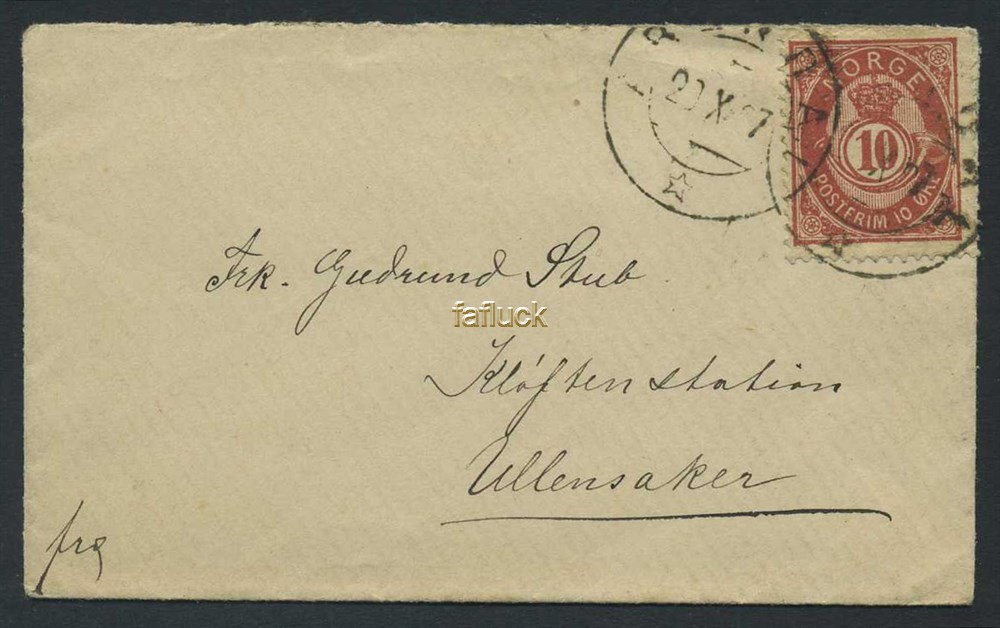 20 X 97
NORGE
10
POSTFRIM 10 ØRE
Frk. Gudrund Stub
fafluck
Kløften station
Ullensaker
frq